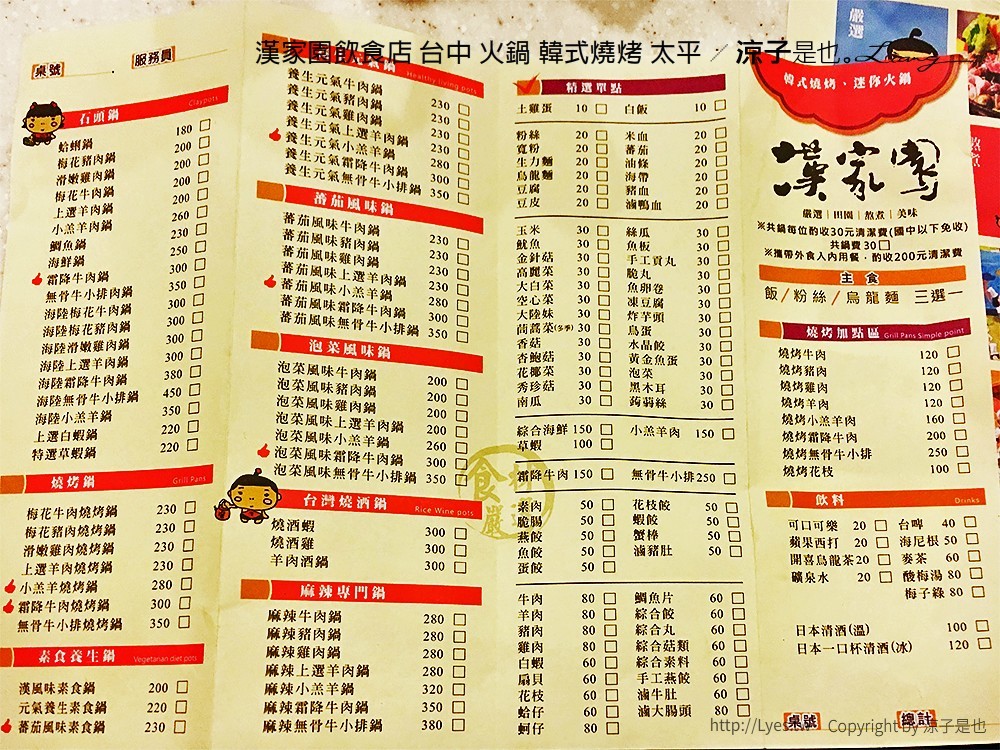 漢家園飲食店 台中 火鍋 韓式燒烤 太平 / 涼子是也。
桌號
服務員
石頭鍋 Claypots
蛤蜊鍋 180 □
梅花豬肉鍋 200 □
滑嫩雞肉鍋 200 □
梅花牛肉鍋 200 □
上選羊肉鍋 200 □
小羔羊肉鍋 260 □
鯛魚鍋 230 □
海鮮鍋 250 □
霜降牛肉鍋 300 □
無骨牛小排肉鍋 350 □
海陸梅花牛肉鍋 300 □
海陸梅花豬肉鍋 300 □
海陸滑嫩雞肉鍋 300 □
海陸上選羊肉鍋 300 □
海陸霜降牛肉鍋 380 □
海陸無骨牛小排鍋 450 □
海陸小羔羊鍋 350 □
上選白蝦鍋 220 □
特選草蝦鍋 220 □
燒烤鍋 Grill Pans
梅花牛肉燒烤鍋 230 □
梅花豬肉燒烤鍋 230 □
滑嫩雞肉燒烤鍋 230 □
上選羊肉燒烤鍋 230 □
小羔羊燒烤鍋 280 □
霜降牛肉燒烤鍋 300 □
無骨牛小排燒烤鍋 350 □
素食養生鍋 Vegetarian diet pots
漢風味素食鍋 200 □
元氣養生素食鍋 220 □
蕃茄風味素食鍋 230 □
Healthy living pots
養生元氣牛肉鍋 230 □
養生元氣豬肉鍋 230 □
養生元氣雞肉鍋 230 □
養生元氣上選羊肉鍋 230 □
養生元氣小羔羊鍋 280 □
養生元氣霜降牛肉鍋 300 □
養生元氣無骨牛小排鍋 350 □
蕃茄風味鍋
蕃茄風味牛肉鍋 230 □
蕃茄風味豬肉鍋 230 □
蕃茄風味雞肉鍋 230 □
蕃茄風味上選羊肉鍋 230 □
蕃茄風味小羔羊鍋 280 □
蕃茄風味霜降牛肉鍋 300 □
蕃茄風味無骨牛小排鍋 350 □
泡菜風味鍋
泡菜風味牛肉鍋 200 □
泡菜風味豬肉鍋 200 □
泡菜風味雞肉鍋 200 □
泡菜風味上選羊肉鍋 200 □
泡菜風味小羔羊鍋 260 □
泡菜風味霜降牛肉鍋 300 □
泡菜風味無骨牛小排鍋 350 □
台灣燒酒鍋 Rice Wine pots
燒酒蝦 300 □
燒酒雞 300 □
羊肉酒鍋 300 □
麻辣專門鍋
麻辣牛肉鍋 280 □
麻辣豬肉鍋 280 □
麻辣雞肉鍋 280 □
麻辣上選羊肉鍋 280 □
麻辣小羔羊鍋 320 □
麻辣霜降牛肉鍋 350 □
麻辣無骨牛小排鍋 380 □
精選單點
土雞蛋 10 □ 白飯 10 □
粉絲 20 □ 米血 20 □
寬粉 20 □ 蕃茄 20 □
生力麵 20 □ 油條 20 □
烏龍麵 20 □ 海帶 20 □
豆腐 20 □ 豬血 20 □
豆皮 20 □ 滷鴨血 20 □
玉米 30 □ 絲瓜 30 □
魷魚 30 □ 魚板 30 □
金針菇 30 □ 手工貢丸 30 □
高麗菜 30 □ 脆丸 30 □
大白菜 30 □ 魚卵卷 30 □
空心菜 30 □ 凍豆腐 30 □
大陸妹 30 □ 炸芋頭 30 □
茼蒿菜(冬季) 30 □ 鳥蛋 30 □
香菇 30 □ 水晶餃 30 □
杏鮑菇 30 □ 黃金魚蛋 30 □
花椰菜 30 □ 泡菜 30 □
秀珍菇 30 □ 黑木耳 30 □
南瓜 30 □ 蒟蒻絲 30 □
綜合海鮮 150 □ 小羔羊肉 150 □
草蝦 100 □
霜降牛肉 150 □ 無骨牛小排 250 □
素肉 50 □ 花枝餃 50 □
脆腸 50 □ 蝦餃 50 □
燕餃 50 □ 蟹棒 50 □
魚餃 50 □ 滷豬肚 50 □
蛋餃 50 □
牛肉 80 □ 鯛魚片 60 □
羊肉 80 □ 綜合餃 60 □
豬肉 80 □ 綜合丸 60 □
雞肉 80 □ 綜合菇類 60 □
白蝦 80 □ 綜合素料 60 □
扇貝 80 □ 手工燕餃 60 □
花枝 80 □ 滷牛肚 60 □
蛤仔 60 □ 滷大腸頭 80 □
蚵仔 60 □
嚴選
韓式燒烤、迷你火鍋
漢家園
嚴選 | 田園 | 熬煮 | 美味
※共鍋每位酌收30元清潔費(國中以下免收)
共鍋費 30 □
※攜帶外食入內用餐，酌收200元清潔費
主食
飯/粉絲/烏龍麵 三選一
燒烤加點區 Grill Pans Simple point
燒烤牛肉 120 □
燒烤豬肉 120 □
燒烤雞肉 120 □
燒烤羊肉 120 □
燒烤小羔羊肉 160 □
燒烤霜降牛肉 200 □
燒烤無骨牛小排 250 □
燒烤花枝 100 □
飲料 Drinks
可口可樂 20 □ 台啤 40 □
蘋果西打 20 □ 海尼根 50 □
開喜烏龍茶 20 □ 麥茶 60 □
礦泉水 20 □ 酸梅湯 80 □
梅子綠 80 □
日本清酒(溫) 100 □
日本一口杯清酒(冰) 120 □
桌號
總計
Copyright by 涼子是也